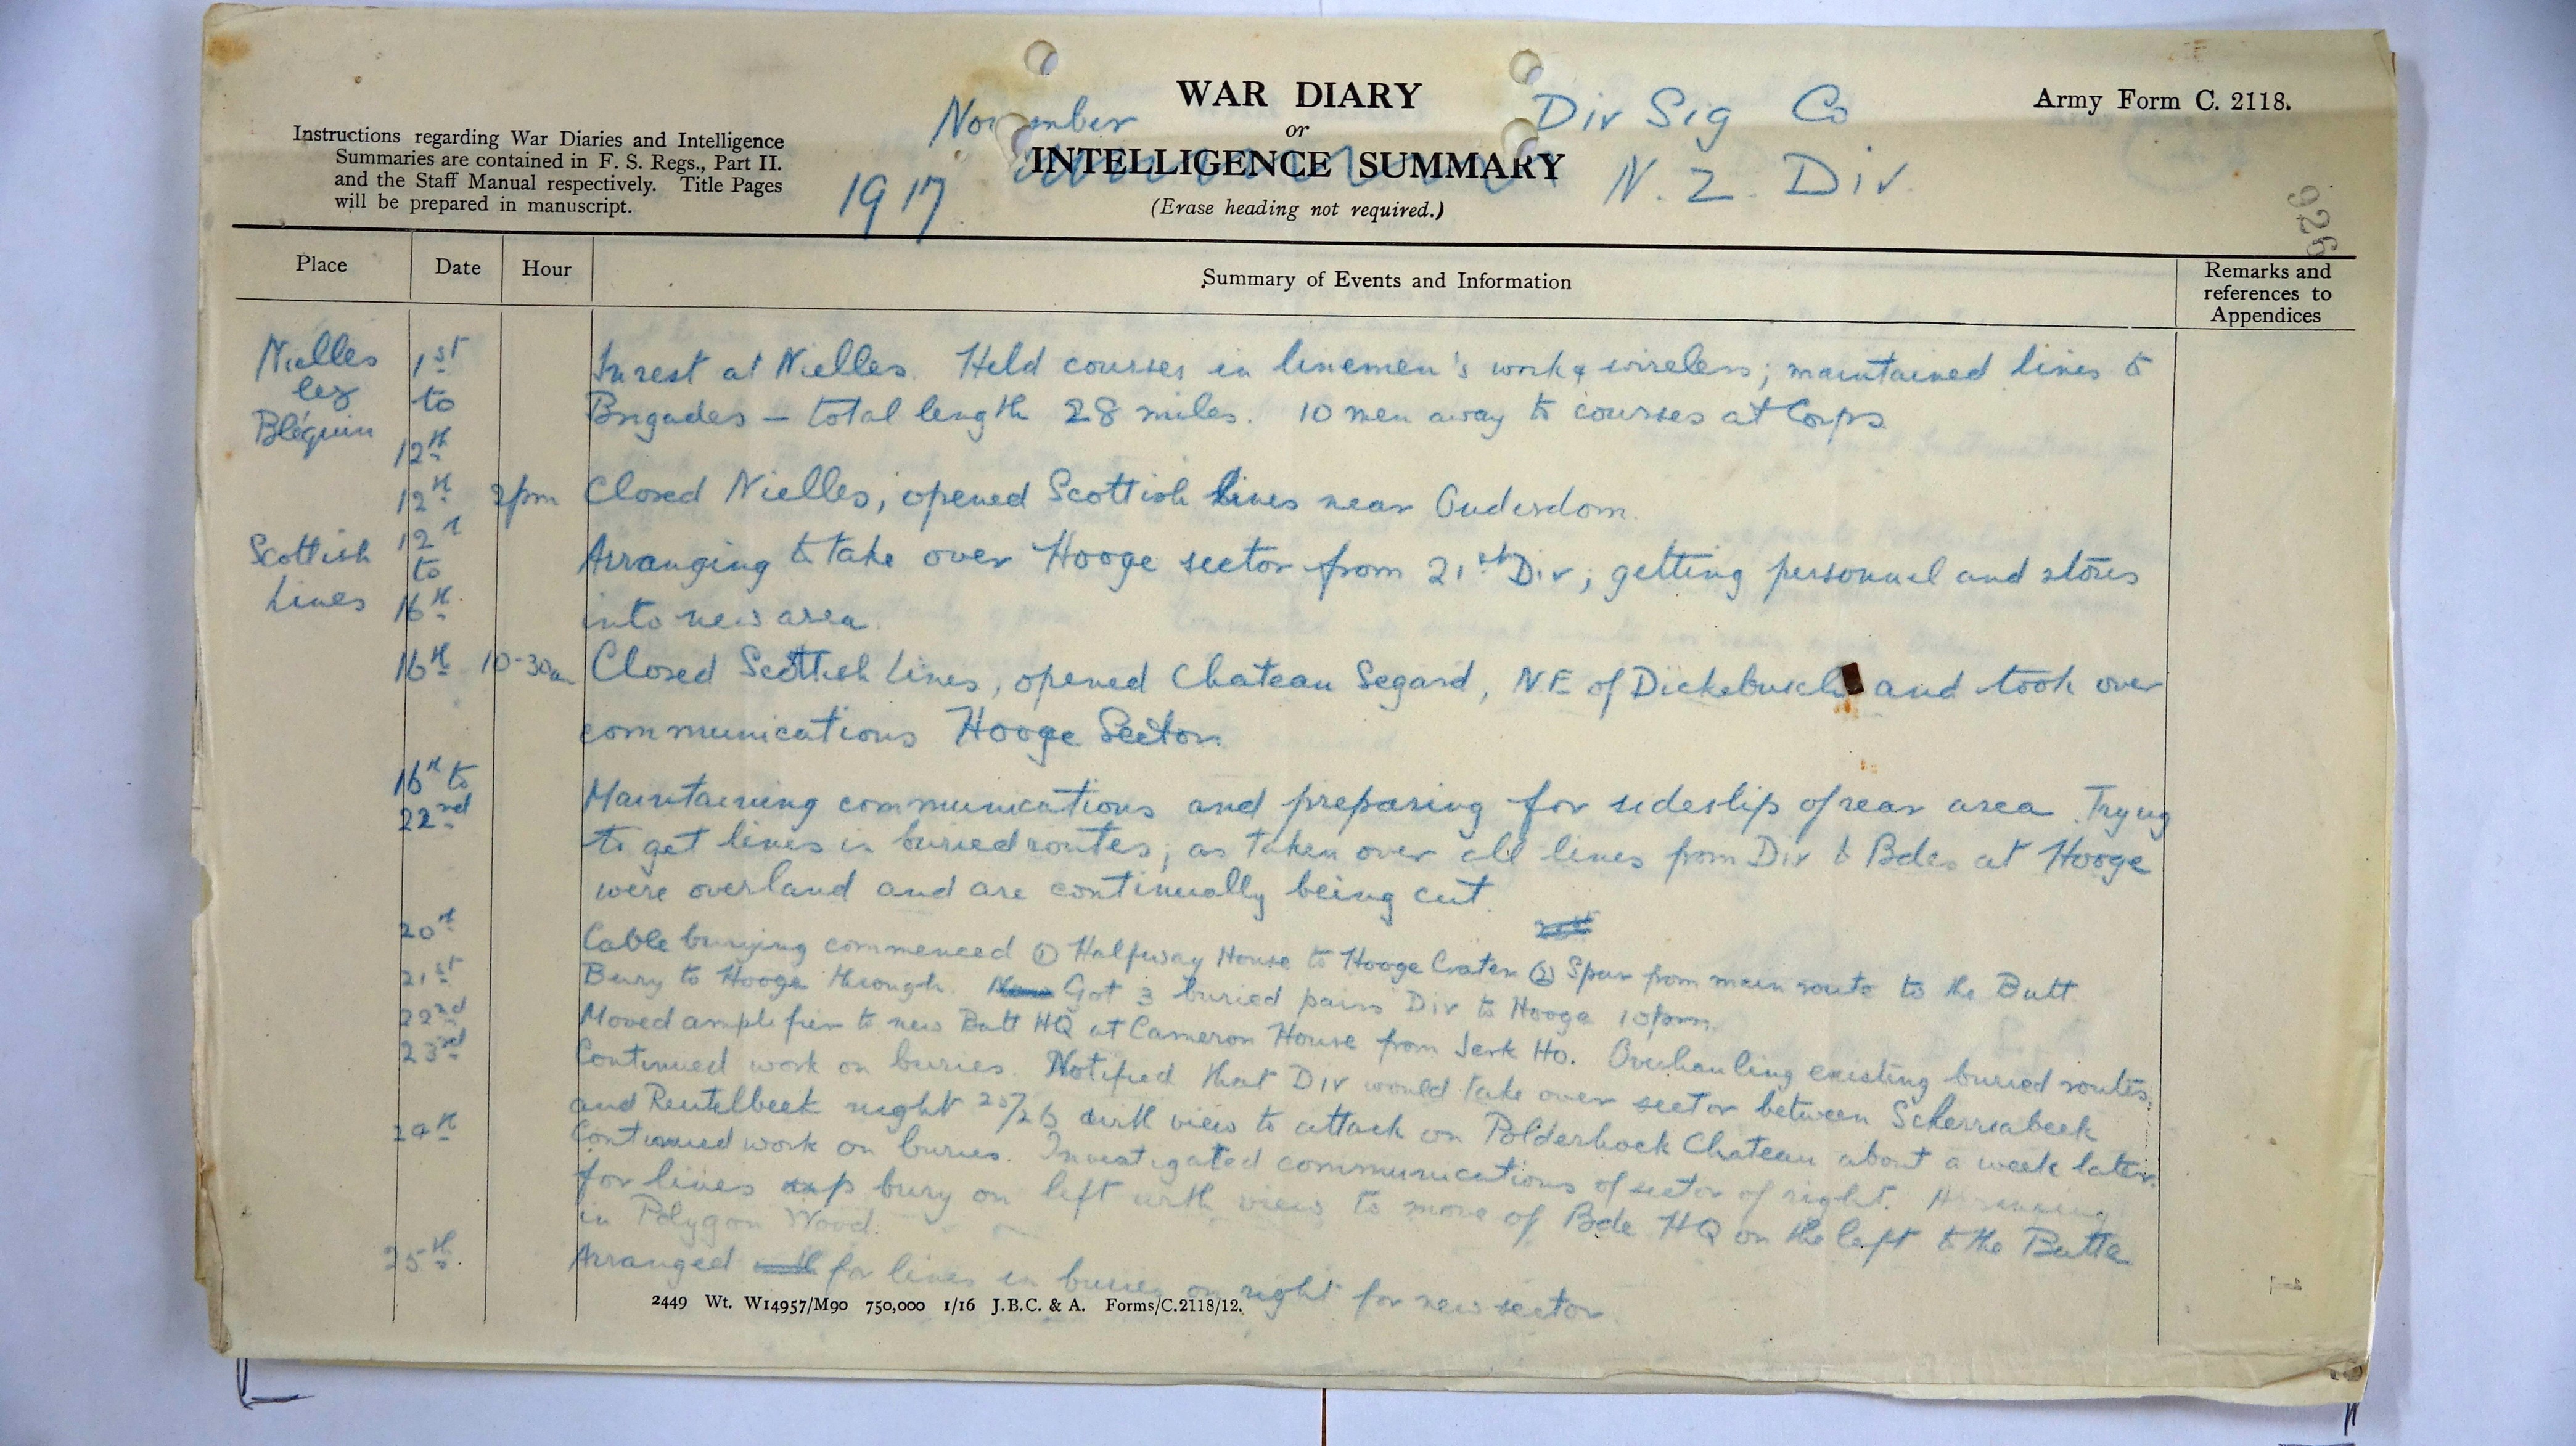 WAR DIARY
or
INTELLIGENCE SUMMARY
(Erase heading not required.)
November
1917
Div Sig Co
N. Z. Div.
Army Form C. 2118.
926
Instructions regarding War Diaries and Intelligence
Summaries are contained in F. S. Regs., Part II.
and the Staff Manual respectively. Title Pages
will be prepared in manuscript.
Place Date Hour Summary of Events and Information Remarks and references to Appendices
Nielles lez Bléquin 1st to 12th In rest at Nielles. Held courses in linemen's work & wireless; maintained lines to
Brigades — total length 28 miles. 10 men away to courses at Corps
12th 2pm Closed Nielles, opened Scottish Lines near Ouderdom.
Scottish Lines 12th to 16th. Arranging to take over Hooge sector from 21st Div; getting personnel and stores
into new area.
16th 10-30a. Closed Scottish Lines, opened Chateau Segard, N.E of Dickebusch and took over
communications Hooge Sector.
16th to 22nd Maintaining communications and preparing for sideslip of rear area. Trying
to get lines in buried routes, as taken over all lines from Div to Bdes at Hooge
were overland and are continually being cut.
20th Cable burying commenced (1) Halfway House to Hooge Crater (2) Spur from main route to the Butt
21st Bury to Hooge through. Got 3 buried pairs Div to Hooge 10pm.
22nd Moved amplifier to new Batt HQ at Cameron House from Jerk Ho. Overhauling existing buried routes.
23rd Continued work on buries. Notified that Div would take over sector between Scherriabeek
and Reutelbeek night 25/26 with view to attack on Polderhoek Chateau about a week later.
24th Continued work on buries. Investigated communications of sector of right. Arranging
for lines up bury on left with view to move of Bde HQ on the left to the Butte
in Polygon Wood.
25th. Arranged for lines in buries on right for new sector
2449 Wt. W14957/M90 750,000 1/16 J.B.C. & A. Forms/C.2118/12.